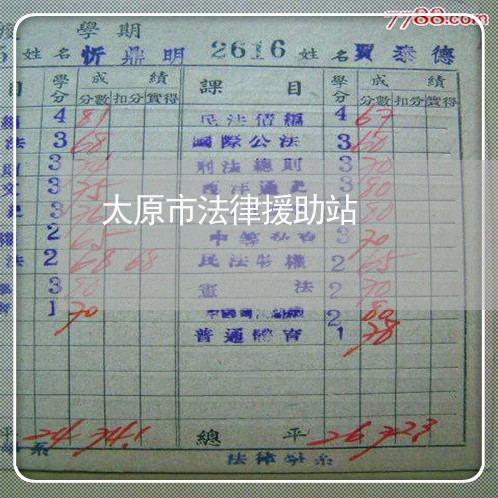 7788.com
學期
姓名 忻鼎明 2616 姓名 賈泰德
目 學分 成績 課目 學分 成績
分數 扣分 實得 分數 扣分 實得
4 81 民法債編 4 67
法 3 68 國際公法 3 60
3 刑法總則 3 70
3 75 西洋通史 3 80
太原市法律援助站
2 65 3 70
法 2 68 68 民法物權 2 65
3 80 憲法 2 70
1 70 2 80
普通體育 1 78
平 24 74.1 總平 26 72.3
系 法律學系